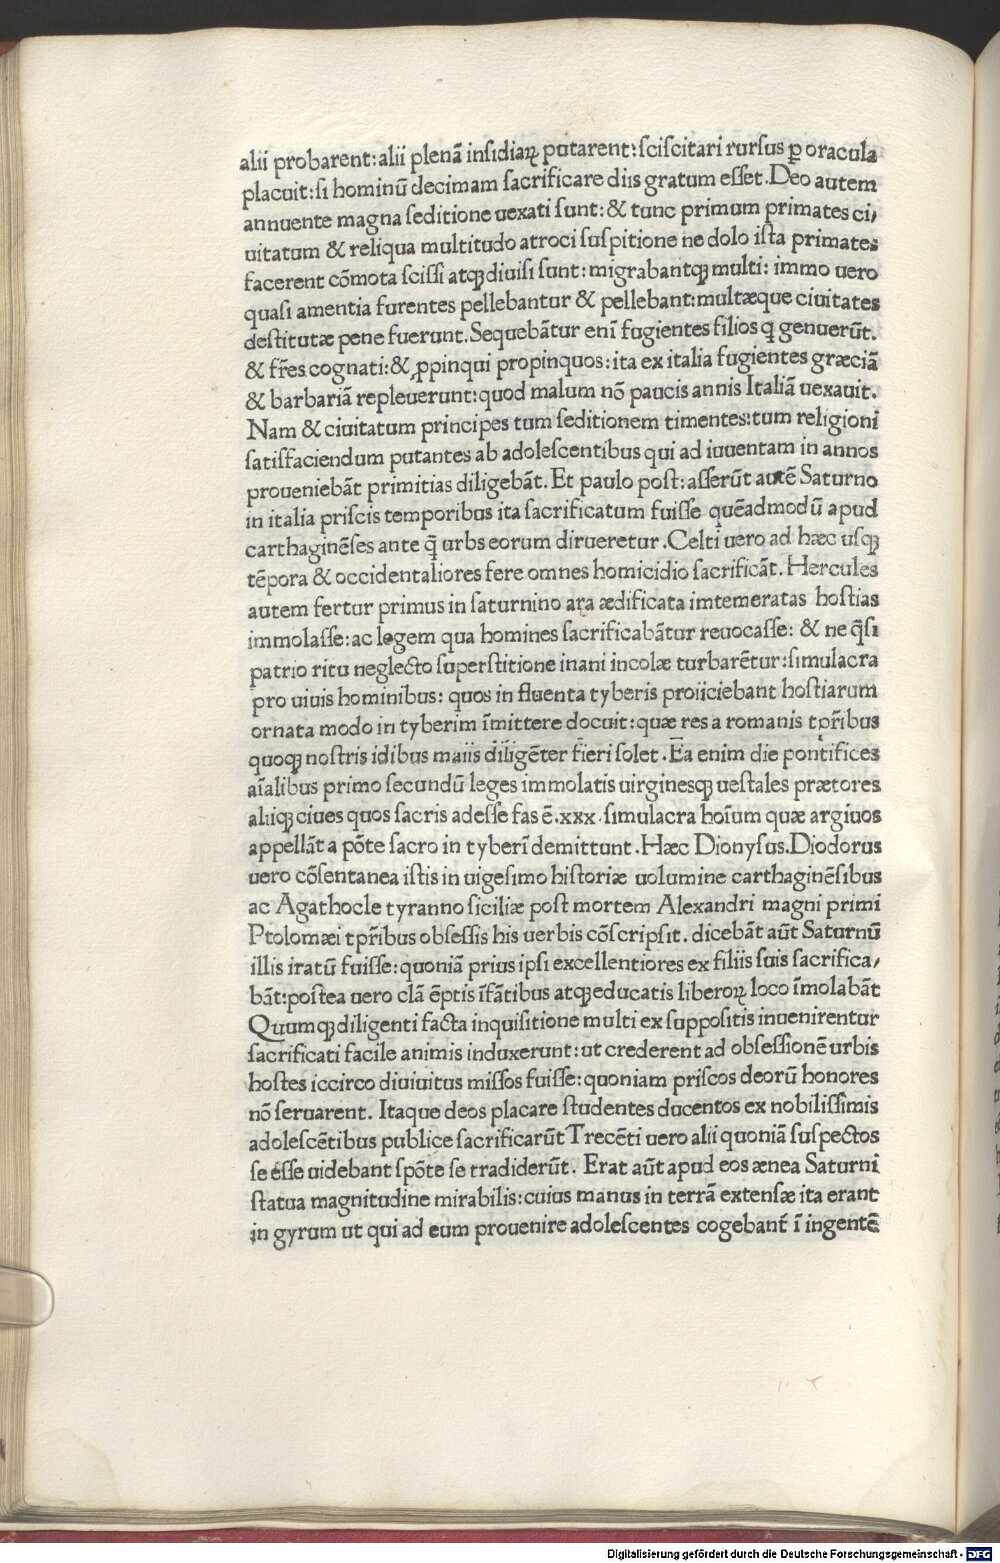 alii probarent:alii plenā insidiaꝝ putarent:sciscitari rursus ꝑ oracula
placuit:si hominū decimam sacrificare diis gratum esset.Deo autem
annuente magna seditione uexati sunt:& tunc primum primates ci/
uitatum & reliqua multitudo atroci suspitione ne dolo ista primates
facerent cōmota scissi atqꝫ diuisi sunt:migrabantqꝫ multi: immo uero
quasi amentia furentes pellebantur & pellebant:multæque ciuitates
destitutæ pene fuerunt.Sequebātur enī fugientes filios q̄ genuerūt.
& fr̄es cognati:& ꝓpinqui propinquos:ita ex italia fugientes græciā
& barbariā repleuerunt:quod malum nō paucis annis Italiā uexauit.
Nam & ciuitatum principes tum seditionem timentes:tum religioni
satisfaciendum putantes ab adolescentibus qui ad iuuentam in annos
proueniebāt primitias diligebāt.Et paulo post:asserūt autē Saturno
in italia priscis temporibus ita sacrificatum fuisse quēadmodū apud
carthaginēses ante q̄ urbs eorum dirueretur.Celti uero ad hæc usqꝫ
tēpora & occidentaliores fere omnes homicidio sacrificāt.Hercules
autem fertur primus in saturnino ara ædificata imtemeratas hostias
immolasse:ac legem qua homines sacrificabātur reuocasse: & ne q̄si
patrio ritu neglecto superstitione inani incolæ turbarētur:simulacra
pro uiuis hominibus: quos in fluenta tyberis proiiciebant hostiarum
ornata modo in tyberim īmittere docuit:quæ res a romanis tꝑibus
quoqꝫ nostris idibus maiis diligēter fieri solet.Ea enim die pontifices
aīalibus primo secundū leges immolatis uirginesqꝫ uestales prætores
aliiqꝫ ciues quos sacris adesse fas ē.xxx.simulacra hoīum quæ argiuos
appellāt a pōte sacro in tyberī demittunt.Hæc Dionysus.Diodorus
uero cōsentanea istis in uigesimo historiæ uolumine carthaginēsibus
ac Agathocle tyranno siciliæ post mortem Alexandri magni primi
Ptolomæi tꝑibus obsessis his uerbis cōscripsit. dicebāt aūt Saturnū
illis iratū fuisse:quoniā prius ipsi excellentiores ex filiis suis sacrifica/
bāt:postea uero clā ēptis īfātibus atqꝫ educatis liberoꝝ loco īmolabāt
Quumqꝫ diligenti facta inquisitione multi ex suppositis inuenirentur
sacrificati facile animis induxerunt:ut crederent ad obsessionē urbis
hostes iccirco diuiuitus missos fuisse:quoniam priscos deorū honores
nō seruarent. Itaque deos placare studentes ducentos ex nobilissimis
adolescētibus publice sacrificarūt Trecēti uero alii quoniā suspectos
se esse uidebant spōte se tradiderūt. Erat aūt apud eos ænea Saturni
statua magnitudine mirabilis:cuius manus in terrā extensæ ita erant
in gyrum ut qui ad eum prouenire adolescentes cogebant̄ ī ingentē
Digitalisierung gefördert durch die Deutsche Forschungsgemeinschaft - DFG